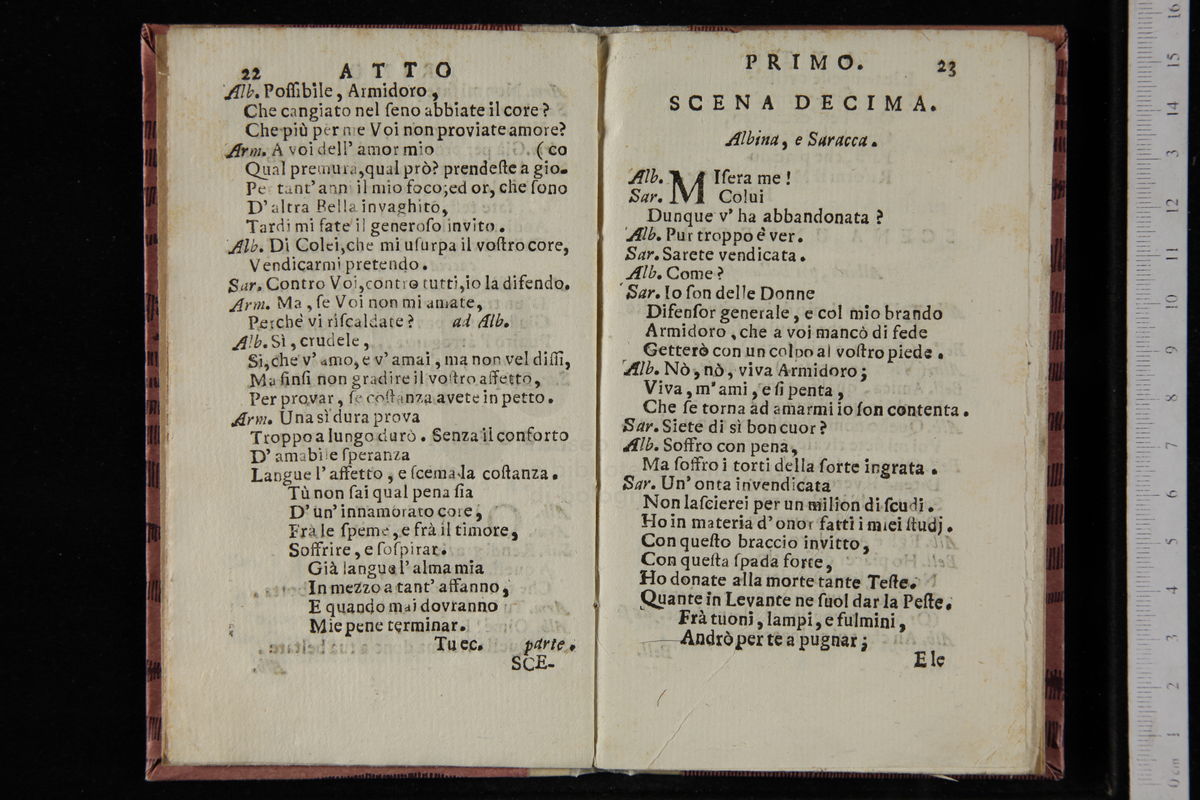 22 ATTO
Alb. Poſſibile, Armidoro,
Che cangiato nel ſeno abbiate il core?
Che più per me Voi non proviate amore?
Arm. A voi dell' amor mio (co
Qual premura, qual prò? prendeſte a gio-
Per tant' anni il mio foco; ed or, che ſono
D' altra Bella invaghito,
Tardi mi fate il generoſo invito.
Alb. Di Colei, che mi uſurpa il voſtro core,
Vendicarmi pretendo.
Sar. Contro Voi, contro tutti, io la difendo.
Arm. Ma, ſe Voi non mi amate,
Perchè vi riſcaldate? ad Alb.
Alb. Sì, crudele,
Sì, che v' amo, e v' amai, ma non vel diſſi,
Ma finſi non gradire il voſtro affetto,
Per provar, ſe coſtanza avete in petto.
Arm. Una sì dura prova
Troppo a lungo durò. Senza il conforto
D' amabile ſperanza
Langue l' affetto, e ſcema la coſtanza.
Tù non ſai qual pena ſia
D' un' innamorato core,
Frà le ſpeme, e frà il timore,
Soffrire, e ſoſpirar.
Già langue l' alma mia
In mezzo a tant' affanno,
E quando mai dovranno
Mie pene terminar.
Tu ec. parte.
SCE-
PRIMO. 23
SCENA DECIMA.
Albina, e Saracca.
Alb. MIſera me!
Sar. Colui
Dunque v' ha abbandonata?
Alb. Pur troppo è ver.
Sar. Sarete vendicata.
Alb. Come?
Sar. Io ſon delle Donne
Difenſor generale, e col mio brando
Armidoro, che a voi mancò di fede
Getterò con un colpo al voſtro piede.
Alb. Nò, nò, viva Armidoro;
Viva, m' ami, e ſi penta,
Che ſe torna ad amarmi io ſon contenta.
Sar. Siete di sì bon cuor?
Alb. Soffro con pena,
Ma ſoffro i torti della ſorte ingrata.
Sar. Un' onta invendicata
Non laſcierei per un milion di ſcudi.
Ho in materia d' onor fatti i miei ſtudj.
Con queſto braccio invitto,
Con queſta ſpada forte,
Ho donate alla morte tante Teſte.
Quante in Levante ne ſuol dar la Peſte.
Frà tuoni, lampi, e fulmini,
Andrò per te a pugnar;
E le